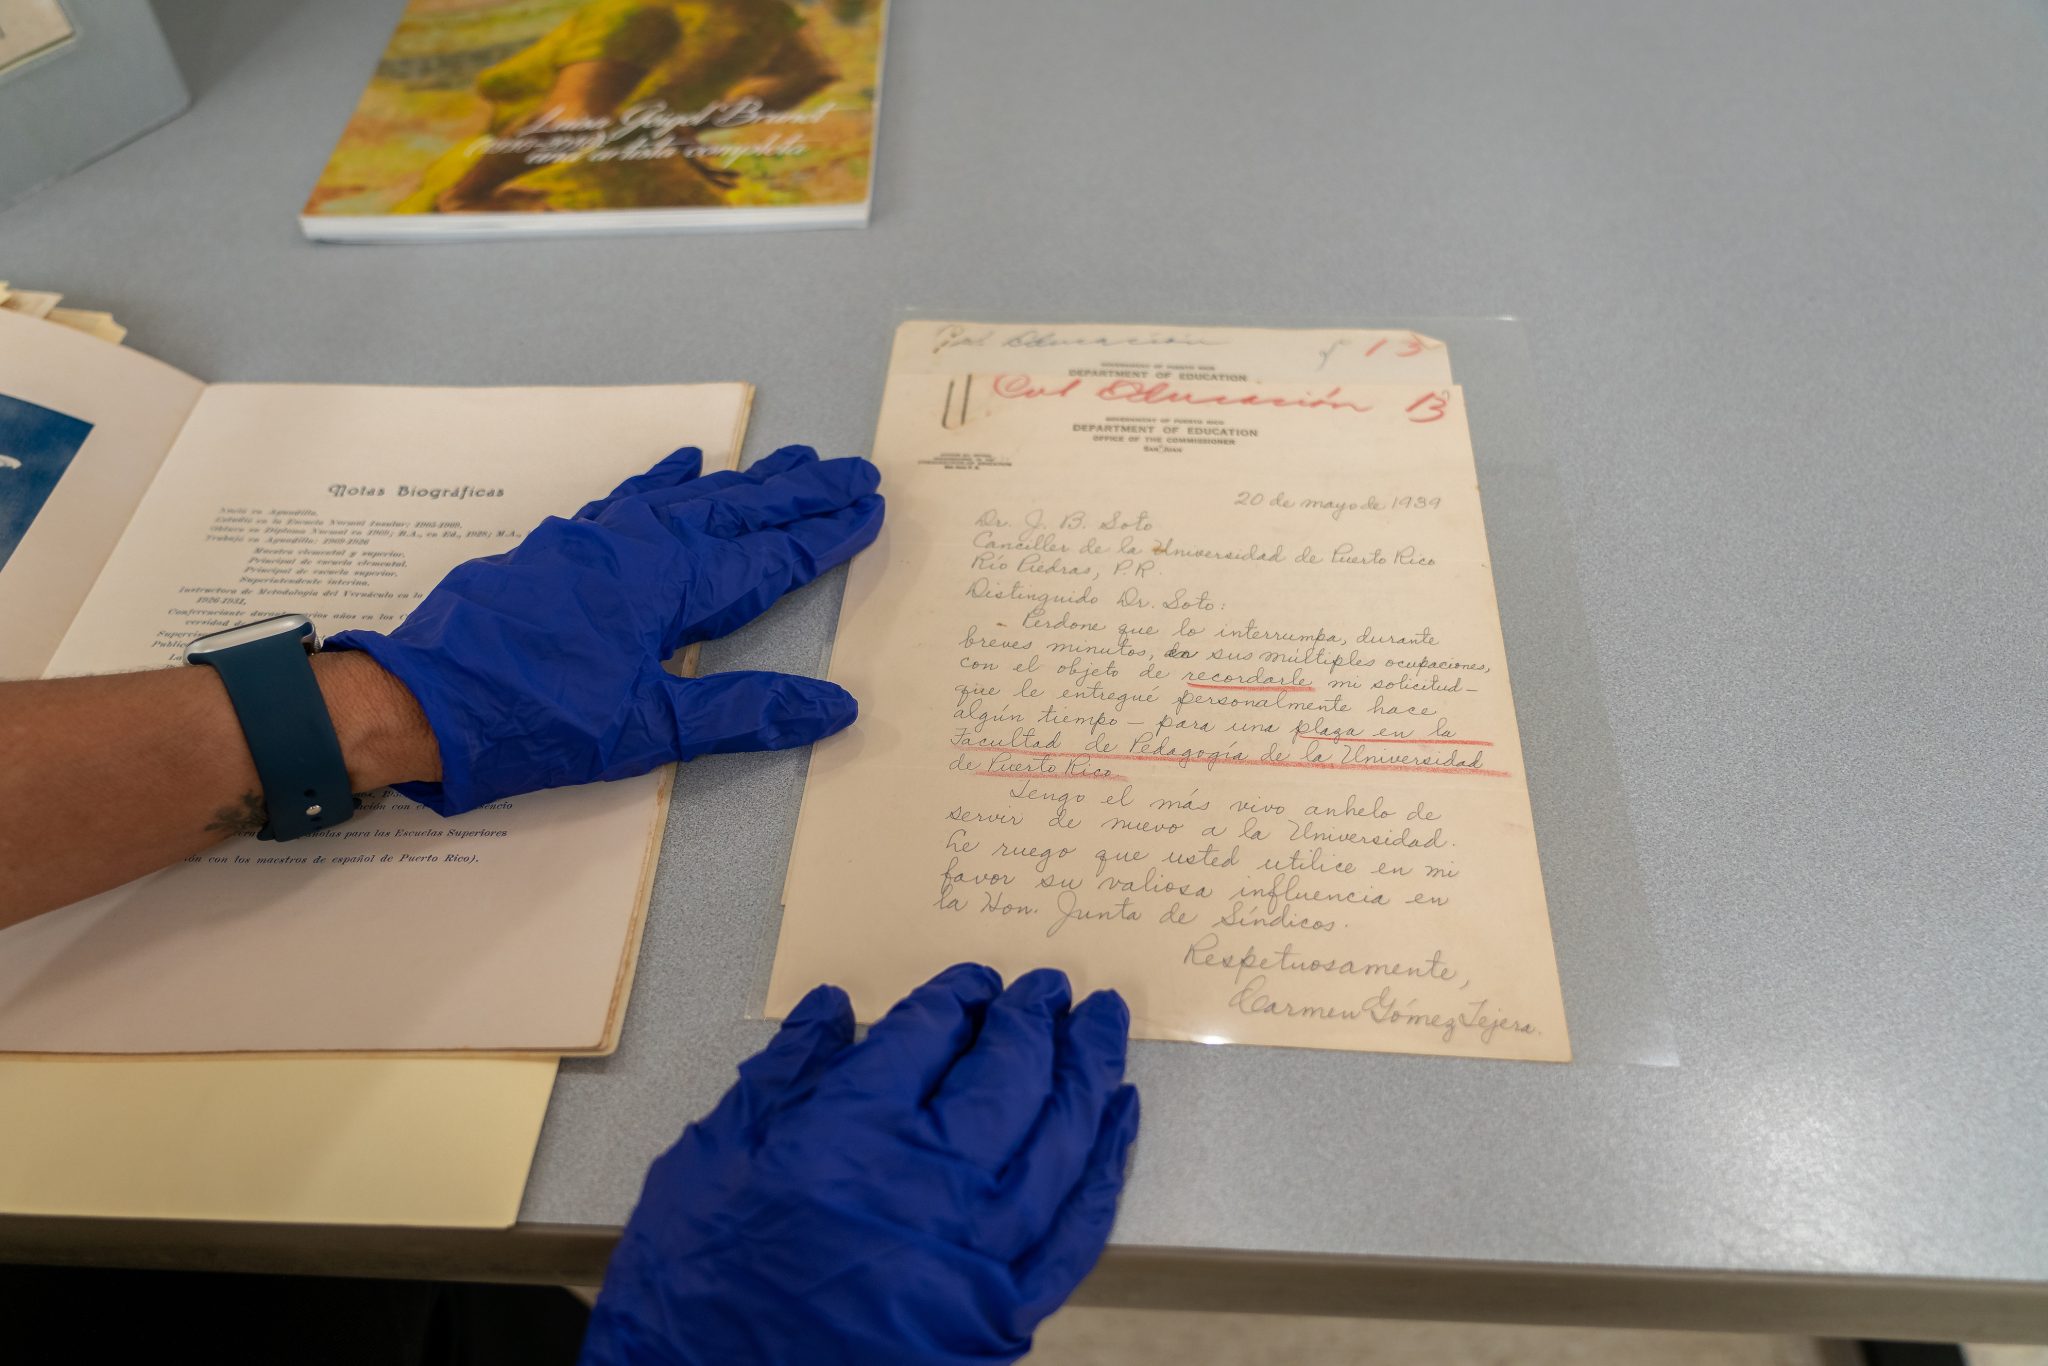 Luisa Géigel Brunet
una artista completa
Notas Biográficas
Nació en Aguadilla.
Estudió en la Escuela Normal Insular; 1905-1909.
Obtuvo su Diploma Normal en 1909; B.A., en Ed., 1928; M.A.,
Trabajo en Aguadilla: 1909-1926
Maestra elemental y superior.
Principal de escuela elemental.
Principal de escuela superior.
Superintendente interina.
Instructora de Metodología del Vernáculo en la
1926-1931.
Conferenciante durante varios años en los
versidad de
Supervis
Public
La
nos, 193
ación con el
sencio
pañolas para las Escuelas Superiores
ón con los maestros de español de Puerto Rico).
Educación 13
GOVERNMENT OF PUERTO RICO
DEPARTMENT OF EDUCATION
Cul Educación 13
GOVERNMENT OF PUERTO RICO
DEPARTMENT OF EDUCATION
OFFICE OF THE COMMISSIONER
SAN JUAN
20 de mayo de 1939
Dr. J. B. Soto
Canciller de la Universidad de Puerto Rico
Río Piedras, P.R.
Distinguido Dr. Soto:
Perdone que lo interrumpa, durante
breves minutos, en sus múltiples ocupaciones,
con el objeto de recordarle mi solicitud—
que le entregué personalmente hace
algún tiempo — para una plaza en la
Facultad de Pedagogía de la Universidad
de Puerto Rico.
Tengo el más vivo anhelo de
servir de nuevo a la Universidad.
Le ruego que usted utilice en mi
favor su valiosa influencia en
la Hon. Junta de Síndicos.
Respetuosamente,
Carmen Gómez Tejera.